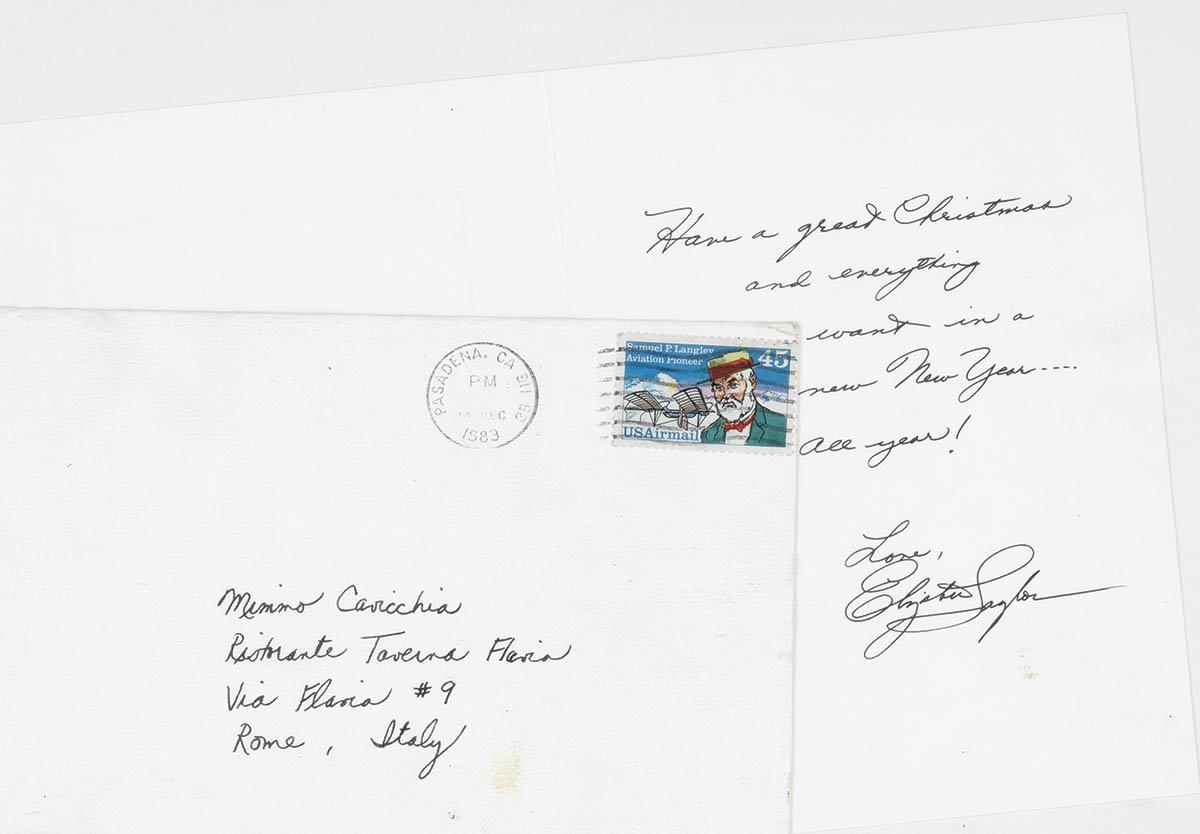 PASADENA, CA 911
PM
14 DEC
Samuel P. Langley
Aviation Pioneer
45
USAirmail
Mimmo Cavicchia
Ristorante Taverna Flavia
Via Flavia #9
Rome, Italy
Have a great Christmas
and everything
want in a
new New Year....
All year!
Love,
Elizabeth Taylor